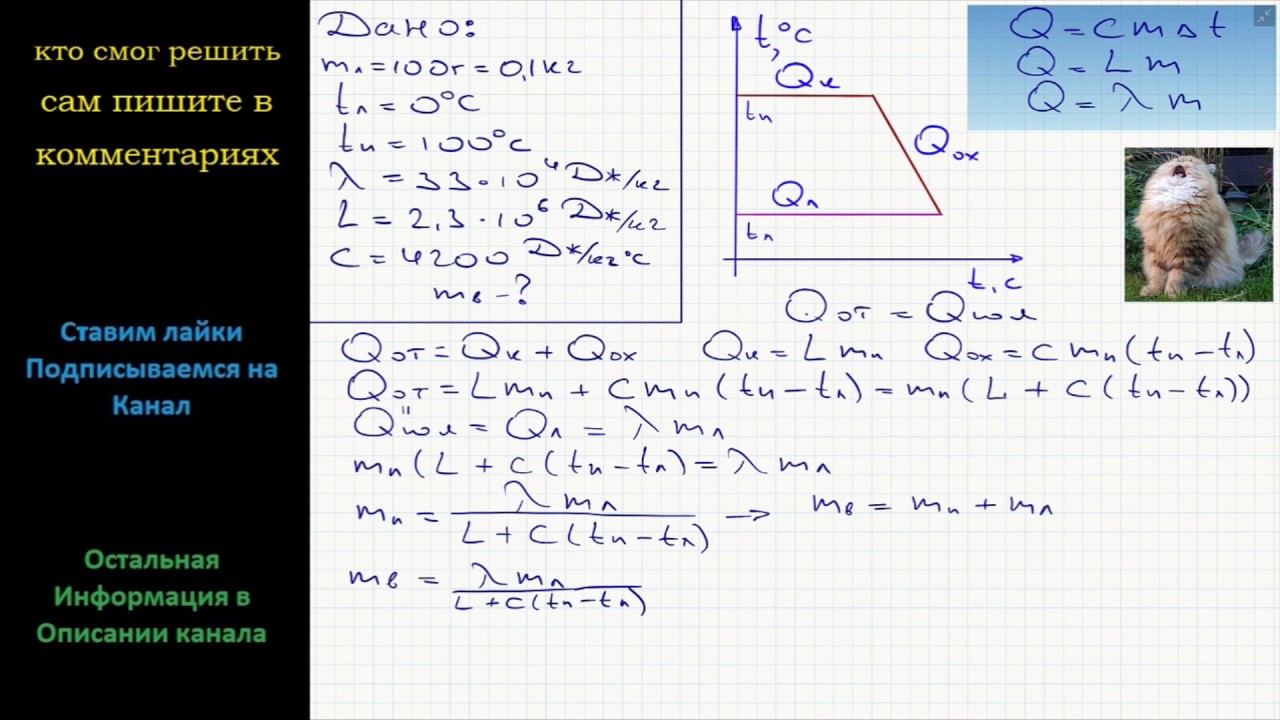 кто смог решить
сам пишите в
комментариях
Ставим лайки
Подписываемся на
Канал
Остальная
Информация в
Описании канала
Дано:
mл = 100г = 0,1 кг
tл = 0°C
tп = 100°C
λ = 33·10⁴ Дж/кг
L = 2,3·10⁶ Дж/кг
C = 4200 Дж/кг°C
mв - ?
t, °C
Qк
tп
Qох
Qл
tл
t, c
Q = cmΔt
Q = Lm
Q = λm
Qот = Qпол
Qот = Qк + Qох Qк = Lmп Qох = Cmп(tп - tл)
Qот = Lmп + Cmп(tп - tл) = mп(L + C(tп - tл))
"
Qпол = Qл = λmл
mп(L + C(tп - tл) = λmл
mп = λmл / L + C(tп - tл) → mв = mп + mл
mв = λmл / L + C(tп - tл)